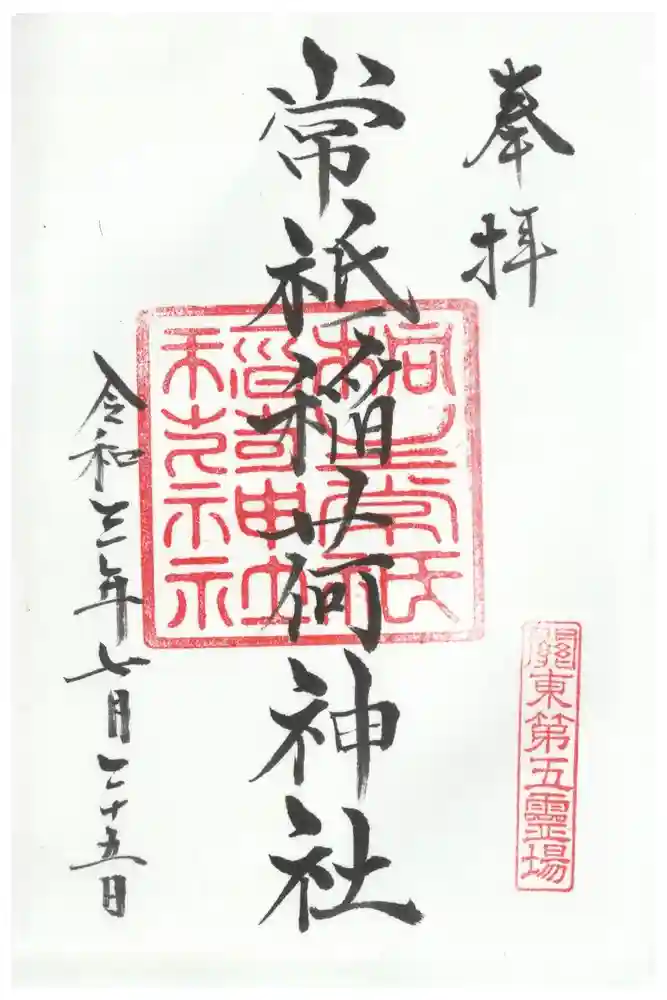 奉拝
關東第五霊場
常祇稲荷神社
令和三年七月二十五日